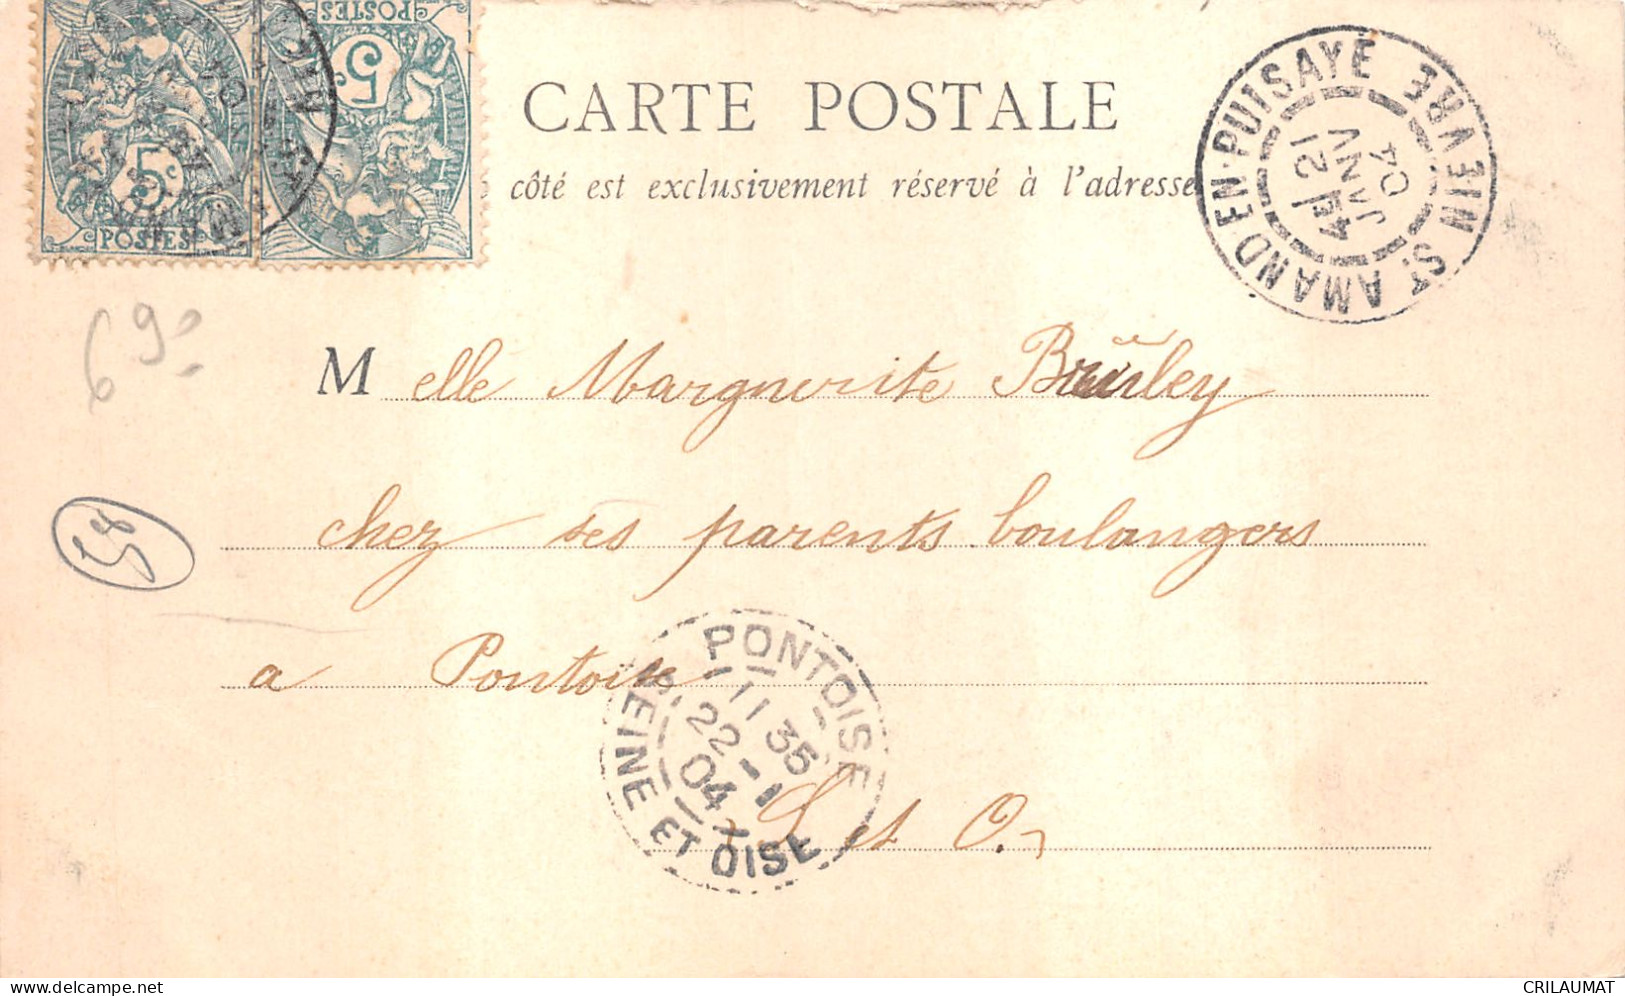 CARTE POSTALE
côté est exclusivement réservé à l'adresse
5c
POSTES
5c
POSTES
ST AMAND EN PUISAYE NIEVRE
4E 21
JANV
04
69
58
Melle Marguerite
chez ses parents boulangers
a Pontoise
S et O.
PONTOISE
11 35
22 - 1
04
SEINE ET OISE
CRILAUMAT